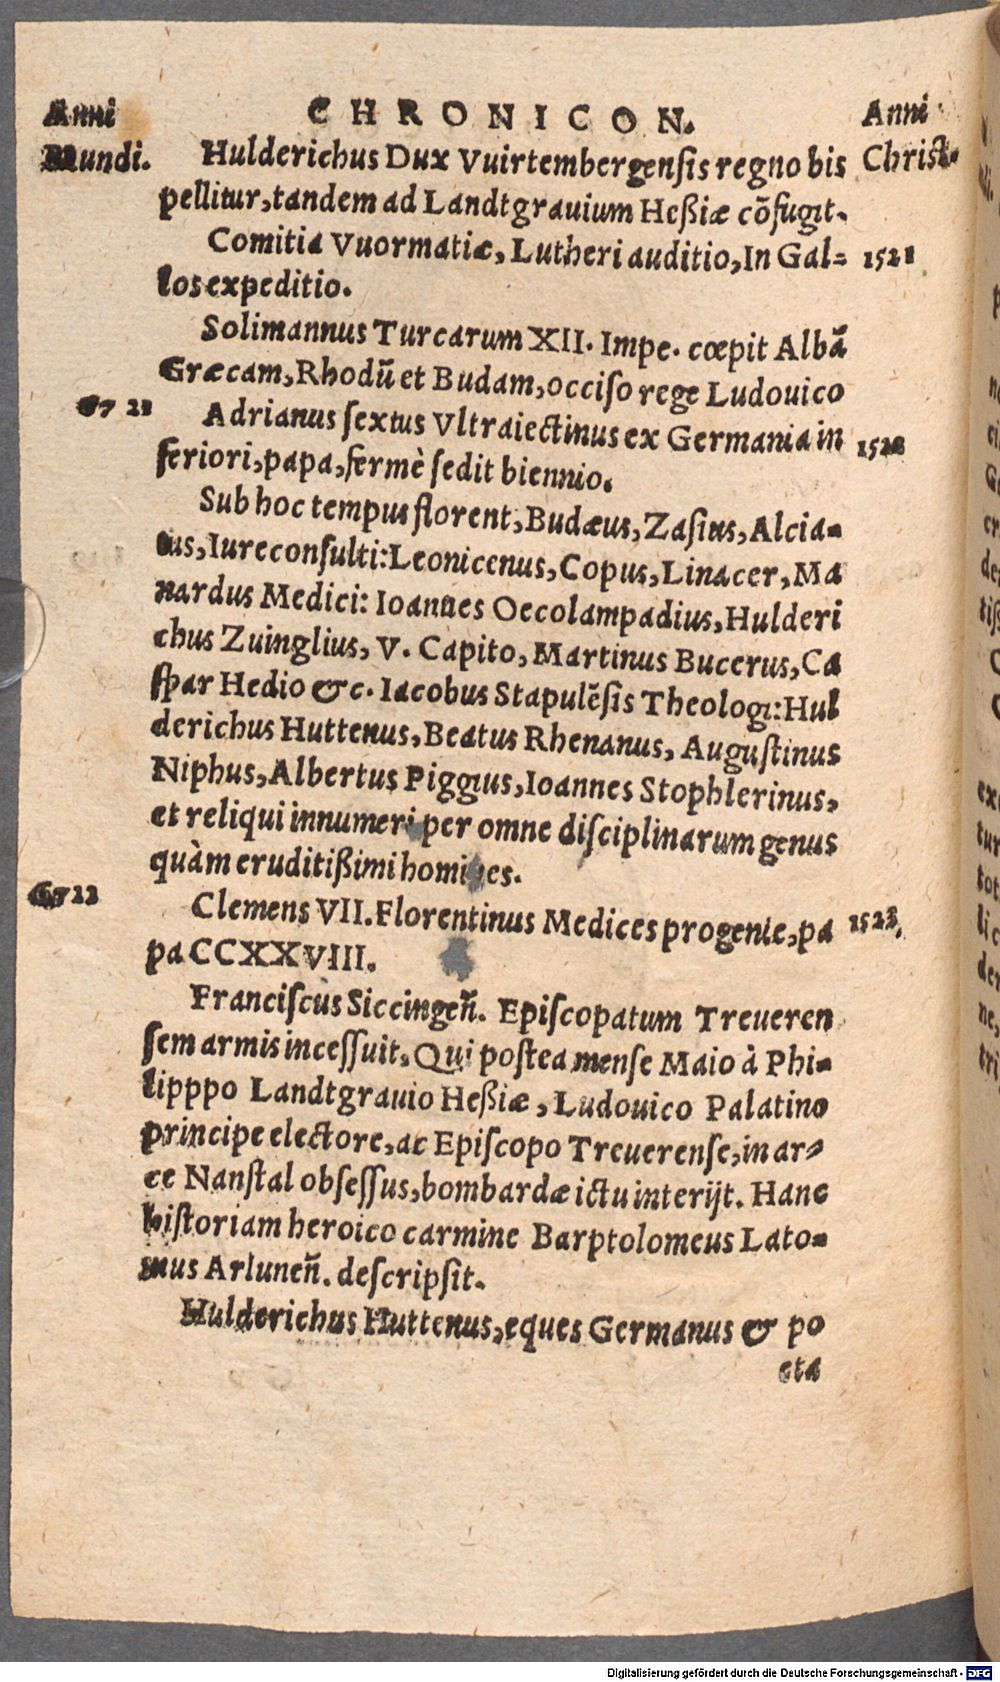 Anni CHRONICON. Anni
Mundi. Hulderichus Dux Vuirtembergensis regno bis Christi.
pellitur, tandem ad Landtgrauium Heßiæ cōfugit.
Comitia Vuormatiæ, Lutheri auditio, In Gal= 1521
los expeditio.
Solimannus Turcarum XII. Impe. cœpit Albā
Græcam, Rhodū et Budam, occiso rege Ludouico
6721 Adrianus sextus Vltraiectinus ex Germania in 1522
feriori, papa, fermè sedit biennio.
Sub hoc tempus florent, Budæus, Zasius, Alcia-
tus, Iureconsulti: Leonicenus, Copus, Linacer, Ma
nardus Medici: Ioannes Oecolampadius, Hulderi
chus Zuinglius, V. Capito, Martinus Bucerus, Ca
spar Hedio &c. Iacobus Stapulēsis Theologi: Hul
derichus Huttenus, Beatus Rhenanus, Augustinus
Niphus, Albertus Piggius, Ioannes Stophlerinus,
et reliqui innumeri per omne disciplinarum genus
quàm eruditißimi homines.
6722 Clemens VII. Florentinus Medices progenie, pa 1523.
pa CCXXVIII.
Franciscus Siccingen̄. Episcopatum Treueren
sem armis incessuit. Qui postea mense Maio à Phi-
lipppo Landtgrauio Heßiæ, Ludouico Palatino
principe electore, ac Episcopo Treuerense, in ar-
ce Nanstal obsessus, bombardæ ictu interijt. Hanc
historiam heroico carmine Barptolomeus Lato-
mus Arlunen̄. descripsit.
Hulderichus Huttenus, eques Germanus & po
eta
Digitalisierung gefördert durch die Deutsche Forschungsgemeinschaft - DFG